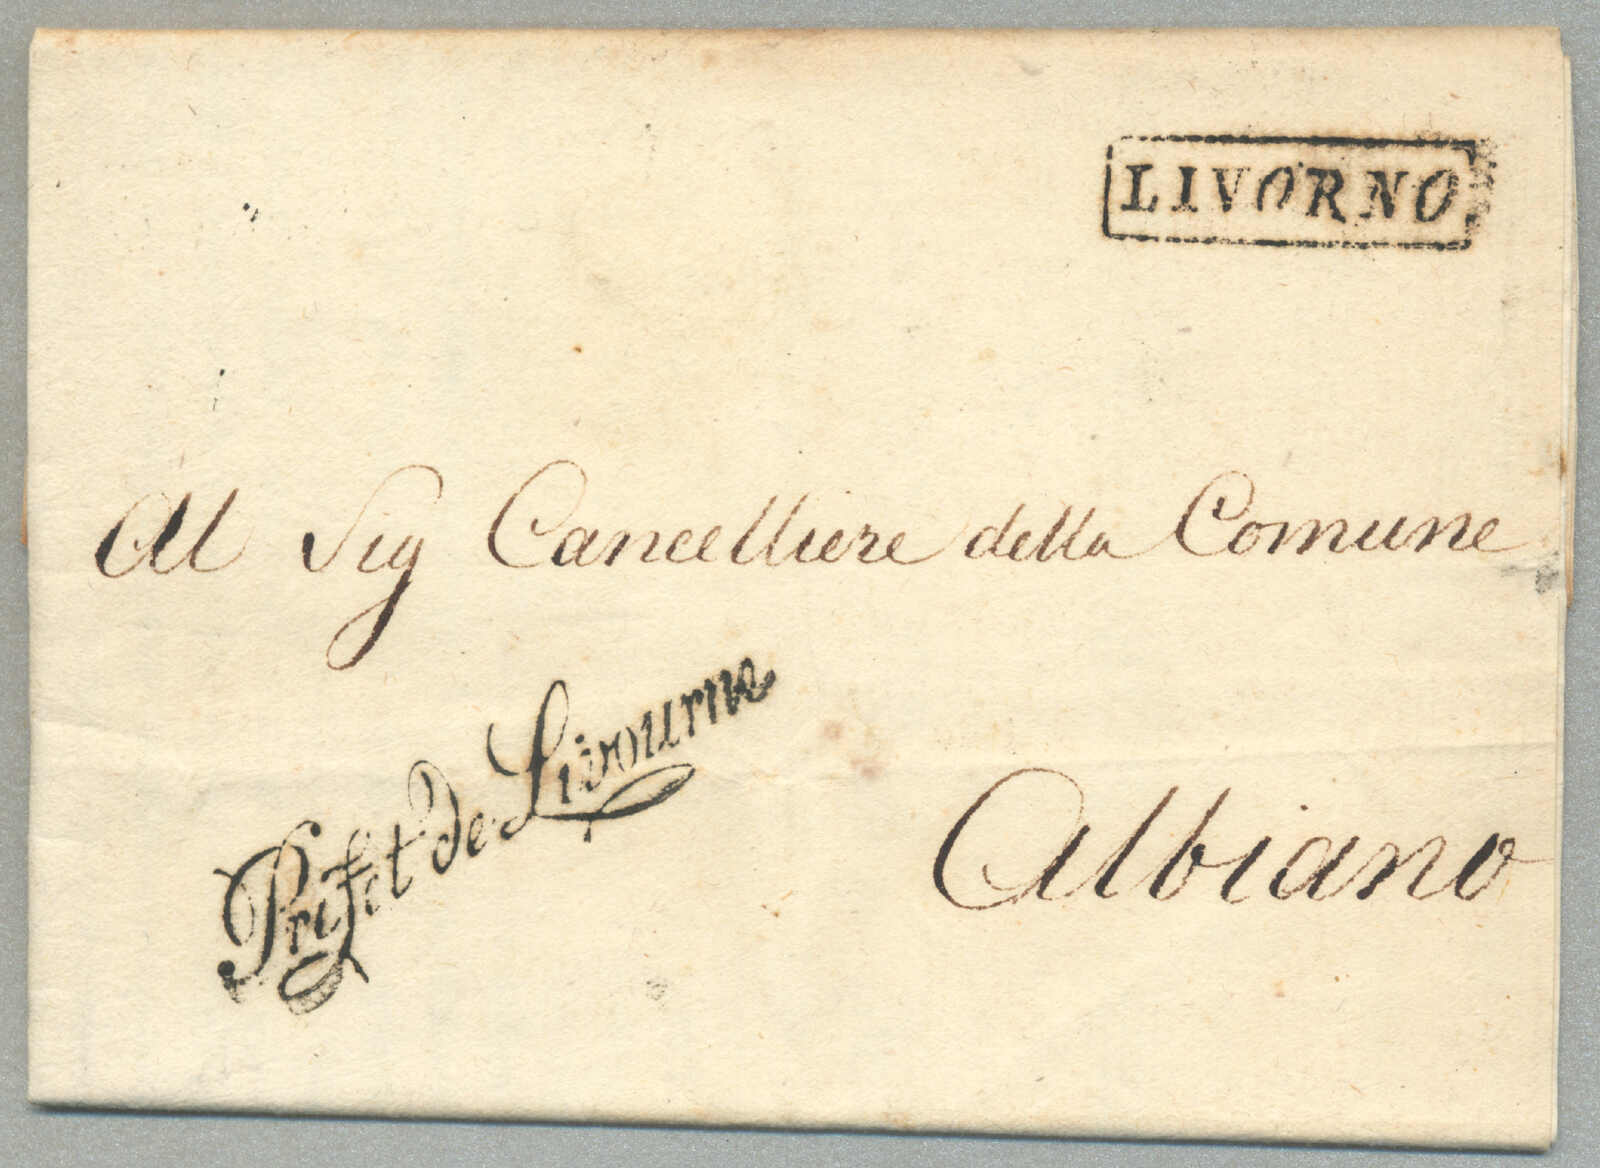 LIVORNO
Al Sig Cancelliere della Comune
Préfet de Livourne
Albiano